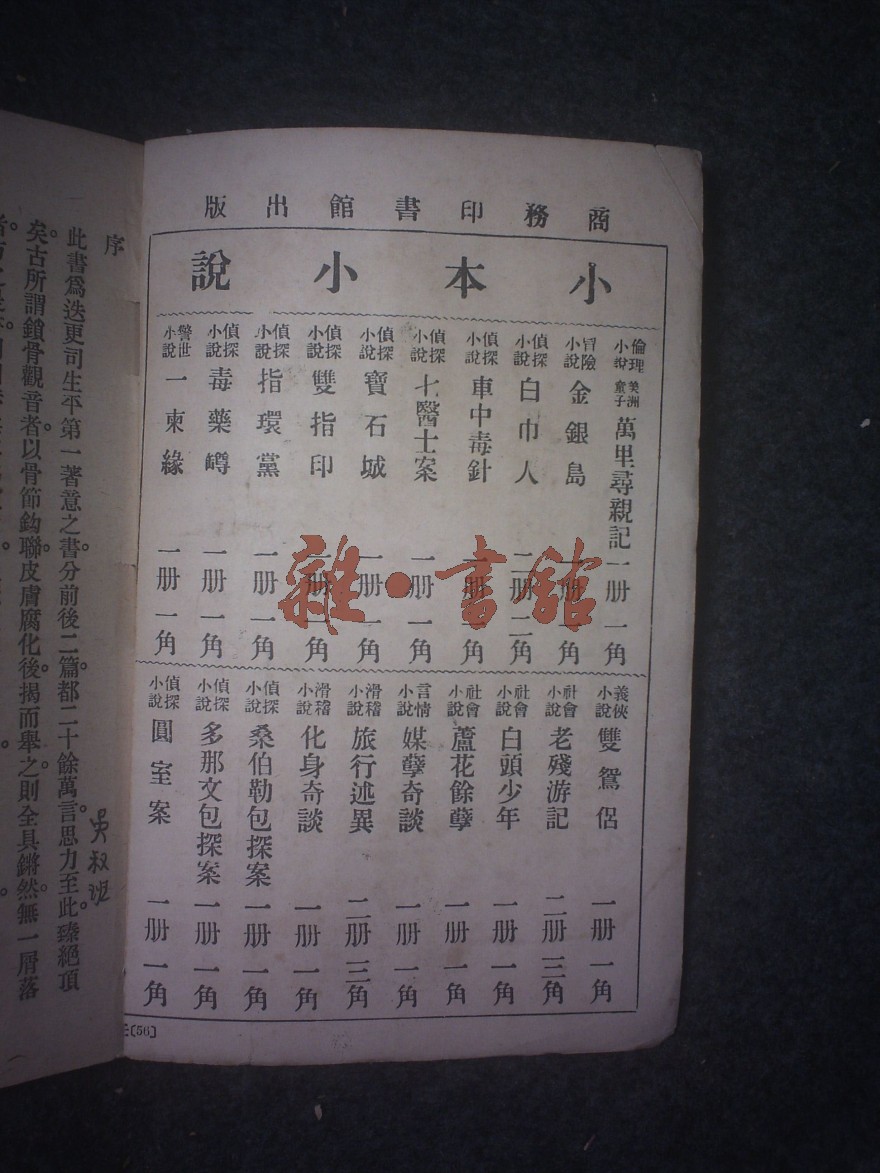 商務印書館出版
小本小說
倫理小說 美洲童子 萬里尋親記 一册 一角
冒險小說 金銀島 一册 一角
偵探小說 白巾人 二册 二角
偵探小說 車中毒針 一册 一角
偵探小說 七醫士案 一册 一角
偵探小說 寶石城 一册 一角
偵探小說 雙指印 一册 一角
偵探小說 指環黨 一册 一角
偵探小說 毒藥罇 一册 一角
警世小說 一柬緣 一册 一角
義俠小說 雙鴛侶 一册 一角
社會小說 老殘游記 二册 三角
社會小說 白頭少年 一册 一角
社會小說 蘆花餘孽 一册 一角
言情小說 媒孽奇談 一册 一角
滑稽小說 旅行述異 二册 三角
滑稽小說 化身奇談 一册 一角
偵探小說 桑伯勒包探案 一册 一角
偵探小說 多那文包探案 一册 一角
偵探小說 圓室案 一册 一角
(56)
雜·書館
序
此書爲迭更司生平第一著意之書。分前後二篇。都二十餘萬言。思力至此。臻絕頂
矣。古所謂鎖骨觀音者。以骨節鈎聯。皮膚腐化後。揭而舉之。則全具鏘然。無一屑落